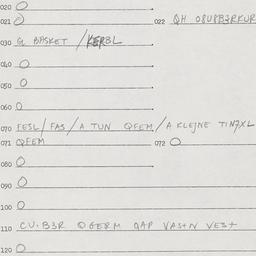 020 O
021 O 022 QH O8U8B3RKUR
030 G BASKET / KERBL
040 O
050 O
060 O
070 FESL / FAS / A TUN QFEM / A KLEJNE TINZXL
071 QFEM 072 O
080 O
090 O
100 O
110 CU·B3R QGERM QAP VAS+N VES+
120 O